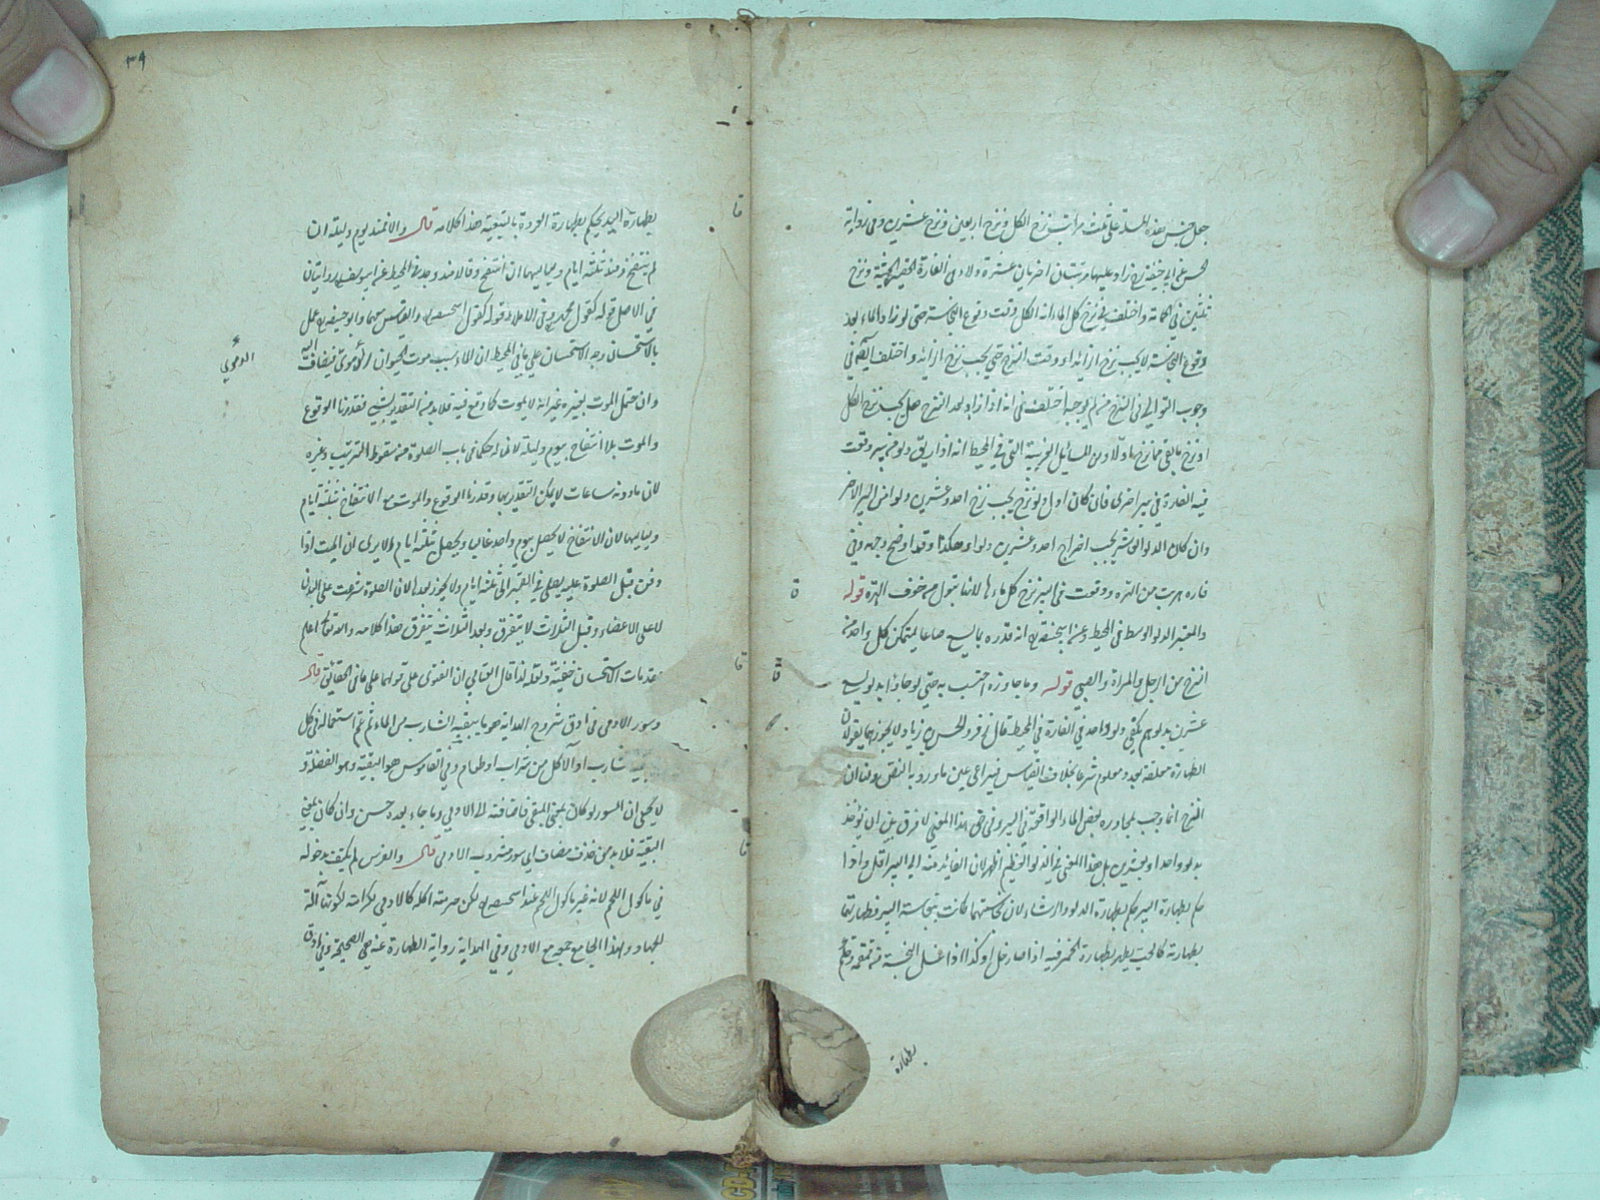 جعل جنس هذه المسئلة على ثلث مراتب نزح الكل ونزح اربعين ونزح عشرين وفي رواية
الحسن عن ابي حنيفة زاد عليها مرتبتان اخريان عشرة ولاء في الفارة الصغيرة ونزح
ثلثين في الحمامة واختلف في نزح كل الماء انه الكل وقت وقوع النجاسة حتى لو زاد الماء بعد
وقوع النجاسة لا يجب نزح الزايد او وقت النزح حتى يجب نزح الزايد واختلف ايضا في
وجوب التوالي في النزح فمن لم يوجبه اختلف في انه اذا زاد بعد النزح هل يجب نزح الكل
او نزح ما بقي نزحه اولا ومن المسائل التي في المحيط انه اذا اريق دلو من بير وقعت
فيه الفارة في بير اخرى فان كان اول دلو نزح يجب نزح احد وعشرين دلوا من البير الاخر
وان كان الدلو العاشر يجب اخراج احد عشر دلوا وهكذا وقد اوضح وجهه وفي
فارة هربت من الهرة ووقعت في البير نزح كل ماءها لانها تبول من خوف الهرة قوله
والمعتبر الدلو الوسط في المحيط وعن ابي حنيفة انه قدره بما يسع صاعا ليتمكن كل واحد من
النزح من الرجل والمراة والصبي قوله وما جاوزه احتسب به حتى لو جاؤا بدلو يسع
عشرين بدلوهم يكفي دلو واحد في الفارة في المحيط قال زفر والحسن بن زياد لا يجوز لهما يقولان
الطهارة معلقة بعدد معلوم شرعا بخلاف القياس فيراعى عين ما ورد به النص ولنا ان
النزح انما وجب لمجاورة بعض الماء الواقعة في البير وفي حق هذا المعنى لا فرق بين ان يؤخذ
بدلو واحد او بعشرين بل هذا المعنى في الدلو العظيم اظهر لان العائد منه الى البير اقل واذا
حكم بطهارة البير حكم بطهارة الدلو والرشاء لان نجاستهما كانت بنجاسة البير فطهارتها
بطهارته كالحب يطهر بطهارة الخمر فيه اذا صار خلا وكذا اذا غسل النجسة
بطهارة
٣٩
بطهارة اليد يحكم بطهارة العروة بالتبعية هذا كلامه قال والا فمنذ يوم وليلة ان
لم ينتفخ ومنذ ثلثة ايام ولياليها ان انتفخ وقالا منذ وجد في المحيط عن ابي يوسف روايتان
في الاصل قوله كقول محمد وفي الاملاء قوله كقول ابي حنيفة والقياس معهما وابو حنيفة عمل
بالاستحسان وجه الاستحسان على ما في المحيط ان الماء سبب موت الحيوان الدموي فيضاف اليه
الدموي
وان احتمل الموت بغيره غير انه لا يموت كما وقع فيه فلا بد من التقدير بشيء فقدرنا الوقوع
والموت بلا انتفاخ بيوم وليلة لان له حكما في باب الصلوة من سقوط الترتيب وغيره
لان ما دونه ساعات لا يمكن التقدير بها وقدرنا الوقوع والموت مع الانتفاخ بثلثة ايام
ولياليها لان الانتفاخ لا يحصل بيوم واحد غالبا ويحصل بثلثة ايام الا يرى ان الميت اذا
دفن قبل الصلوة عليه يصلى في القبر الى ثلثة ايام ولا يجوز بعدها لان الصلوة شرعت على البدن
لا على الاعضاء وقبل الثلاث لا يتفرق وبعد الثلاث يتفرق هذا كلامه والله تعالى اعلم
مقدمات الاستحسان خفية ولعله لذا قال العتابي ان الفتوى على قولهما على ما في الحقائق قال
وسور الادمي في ادق شروح الهداية هو ما يبقيه الشارب من الماء ثم عم استعماله في كل
بقية شارب او آكل من شراب او طعام وفي القاموس هو البقية وهو الفضلة و
لا يخفى ان السور لو كان بمعنى المبقي فاضافته الى الادمي وما جاء بعده حسن وان كان بمعنى
البقية فلا بد من حذف مضاف اي سور مشروب الادمي قال والفرس لم يكتف بدخوله
في ماكول اللحم لانه غير ماكول اللحم عند ابي حنيفة لكن حرمته اكله كالادمي لكرامته لكونه آلة
الجهاد ولهذا الجامع جمع مع الادمي وفي الهداية رواية الطهارة عنه هي الصحيحة وفي ادق